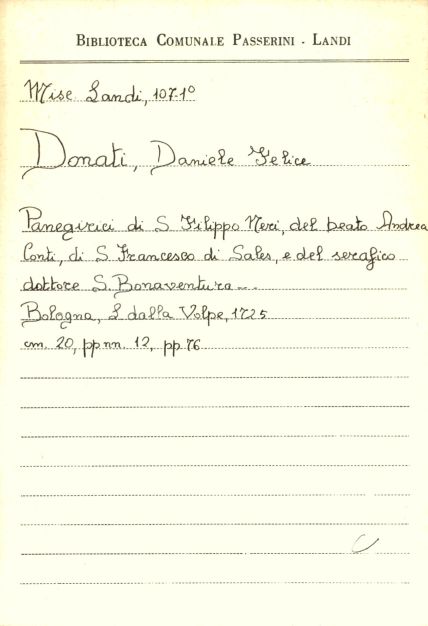 BIBLIOTECA COMUNALE PASSERINI - LANDI
Misc. Landi, 107-1°
Donati, Daniele Felice
Panegirici di S. Filippo Neri, del beato Andrea
Conti, di S. Francesco di Sales, e del serafico
dottore S. Bonaventura...
Bologna, L. dalla Volpe, 1725
cm. 20, pp nn. 12, pp 76